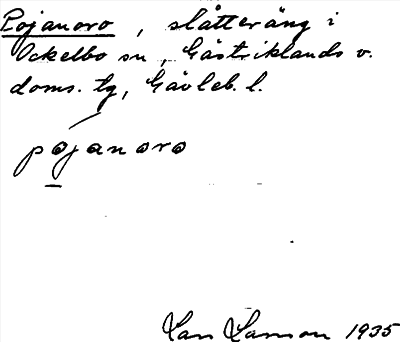 Pojanoro, slåtteräng i
Ockelbo sn, Gästriklands v.
doms. tg, Gävleb. l.
pojanoro
Lars Larsson 1935